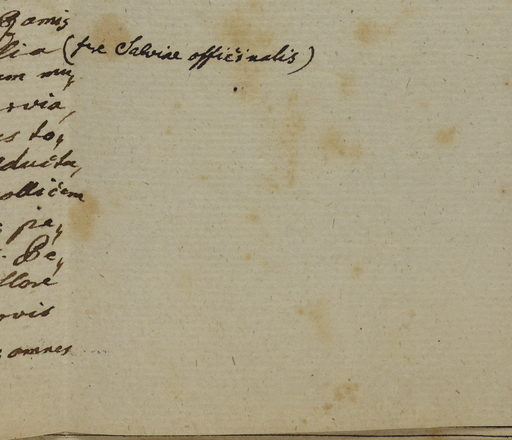 Ramis
lia (fre Salviae officinalis)
um mu,,
rvia,
us to,,
ducta,
ollicem
pe,,
Be,,
flore
rvis
omnes